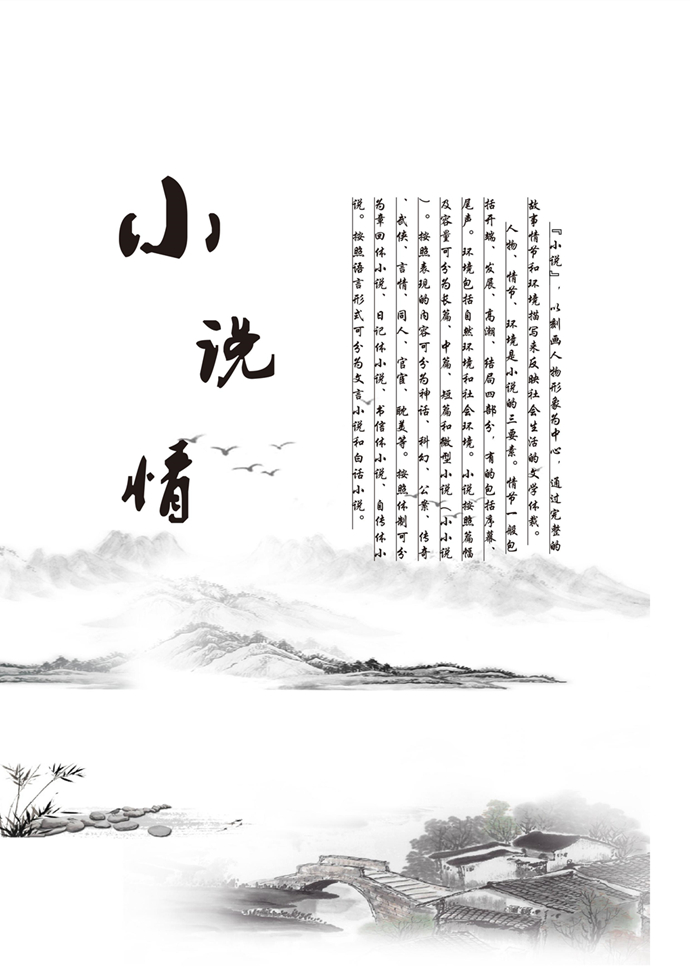 小说情
『小说』，以刻画人物形象为中心，通过完整的
故事情节和环境描写来反映社会生活的文学体裁。
人物、情节、环境是小说的三要素。情节一般包
括开端、发展、高潮、结局四部分，有的包括序幕、
尾声。环境包括自然环境和社会环境。小说按照篇幅
及容量可分为长篇、中篇、短篇和微型小说（小小说
）。按照表现的内容可分为神话、科幻、公案、传奇
、武侠、言情、同人、官宦、耽美等。按照体制可分
为章回体小说、日记体小说、书信体小说、自传体小
说。按照语言形式可分为文言小说和白话小说。